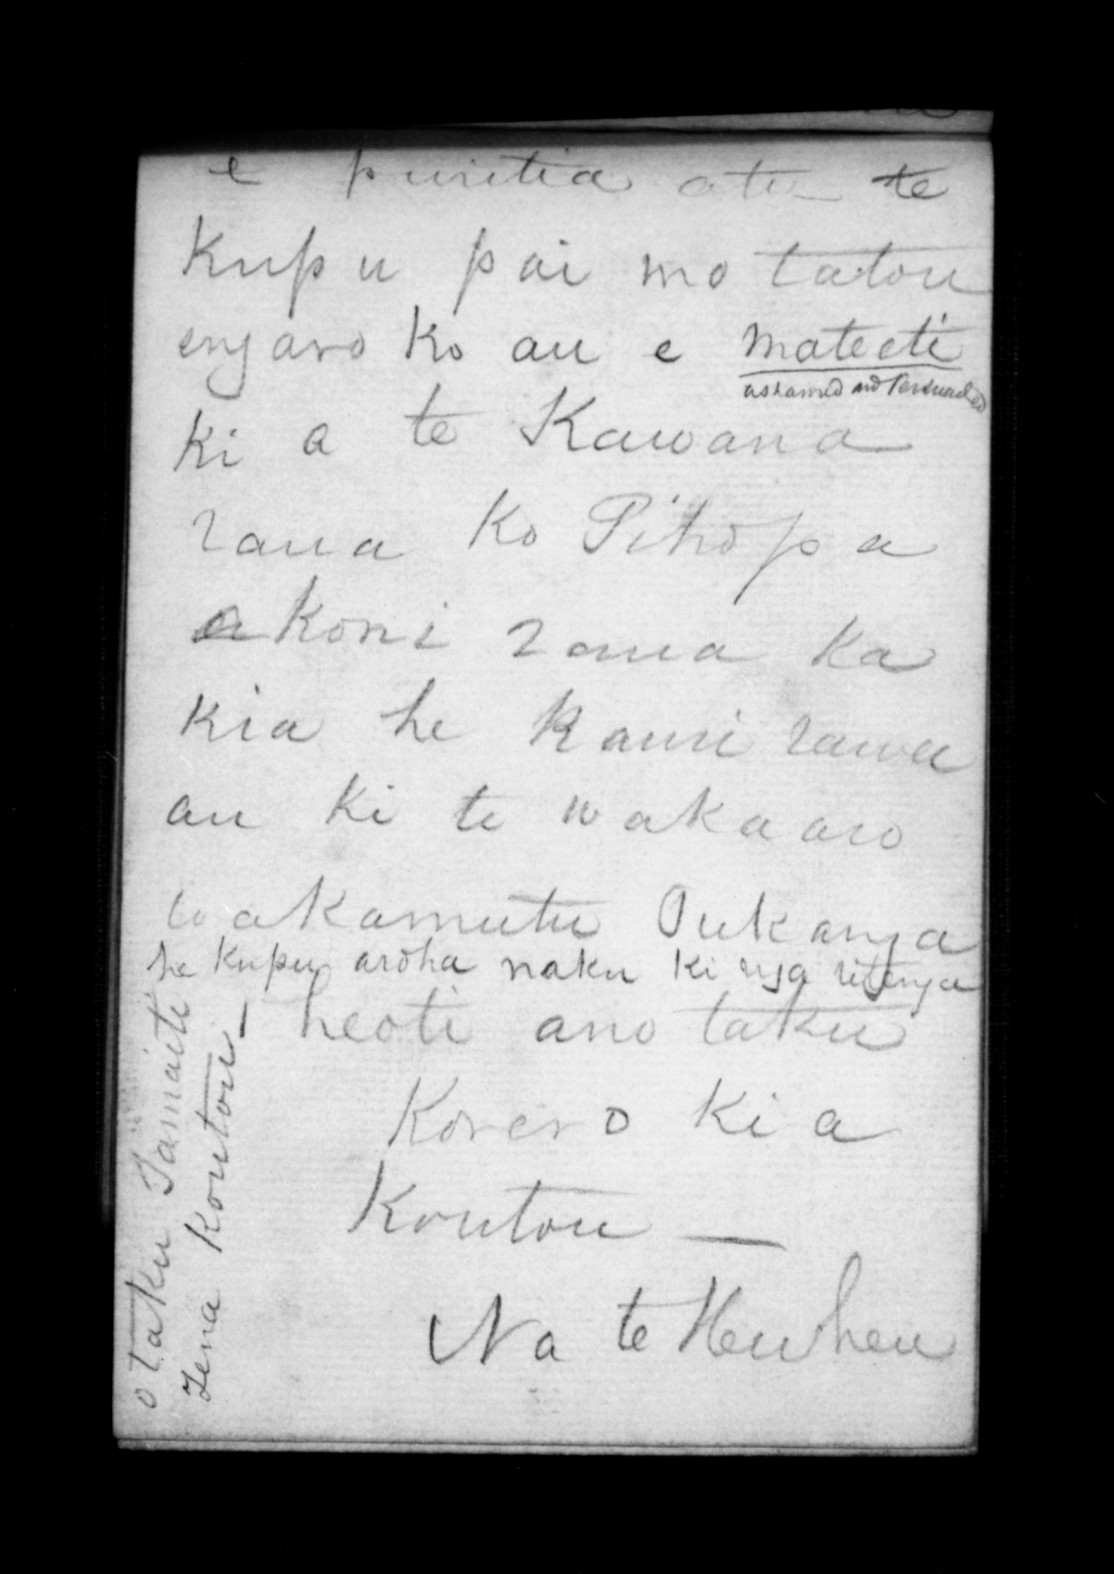 e puritia atu te
Kupu pai mo tatou
engaro ko au e mateeti
ashamed and Persuaded
ki a te Kawana
raua ko Pihopa
akoni raua ka
kia he kauri rawa
au ki te wakaaro
wakamutu Oukanga
he Kupu aroha naku ki nga ritenga
o taku Tamaiti
Tena Koutou
heoti ano taku
Korero ki a
Koutou —
Na te Heuheu